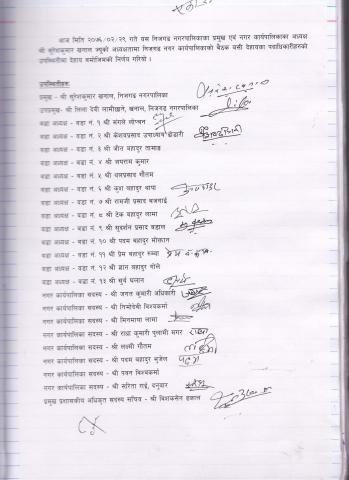 आज मिति २०७६/०२/२९ गते यस निजगढ नगरपालिकाका प्रमुख एवं नगर कार्यपालिकाका अध्यक्ष
श्री सुरेशकुमार खनाल ज्यूको अध्यक्षतामा निजगढ नगरपालिकाको बैठक बसी देहायका पदाधिकारीहरुको
उपस्थितीमा देहाय बमोजिमको निर्णय गरियो ।
उपस्थितीहरुः
प्रमुख - श्री सुरेशकुमार खनाल, निजगढ नगरपालिका
उपप्रमुख - श्री लिला देवी लामीछाने, खनाल, निजगढ नगरपालिका
वडा अध्यक्ष - वडा नं. १ श्री मंगले लोप्चन
वडा अध्यक्ष - वडा नं. २ श्री केशवप्रसाद उपाध्याय
वडा अध्यक्ष - वडा नं. ३ श्री जीत बहादुर तामाङ
वडा अध्यक्ष - वडा नं. ४ श्री जयराम कुमार
वडा अध्यक्ष - वडा नं. ५ श्री धनप्रसाद गौतम
वडा अध्यक्ष - वडा नं. ६ श्री कुश बहादुर थापा
वडा अध्यक्ष - वडा नं. ७ श्री रामजी प्रसाद बजगाई
वडा अध्यक्ष - वडा नं. ८ श्री टेक बहादुर लामा
वडा अध्यक्ष - वडा नं. ९ श्री सुदर्शन प्रसाद दाहाल
वडा अध्यक्ष - वडा नं. १० श्री पदम बहादुर मोक्तान
वडा अध्यक्ष - वडा नं. ११ श्री प्रेम बहादुर
वडा अध्यक्ष - वडा नं. १२ श्री ज्ञान बहादुर गोले
वडा अध्यक्ष - वडा नं. १३ श्री सुर्य घलान
नगर कार्यपालिका सदस्य - श्री जगत कुमारी अधिकारी
नगर कार्यपालिका सदस्य - श्री निमोदेवी विश्वकर्मा
नगर कार्यपालिका सदस्य - श्री मिनमाया लामा
नगर कार्यपालिका सदस्य - श्री राधा कुमारी पुलामी मगर राधा
नगर कार्यपालिका सदस्य - श्री लक्ष्मी गौतम लक्ष्मी
नगर कार्यपालिका सदस्य - श्री पदम बहादुर भुजेल पदम
नगर कार्यपालिका सदस्य - श्री पवन विश्वकर्मा
नगर कार्यपालिका सदस्य - श्री सरिता राई, दनुवार
प्रमुख प्रशासकीय अधिकृत सदस्य सचिव - श्री बिशकसेन ढकाल